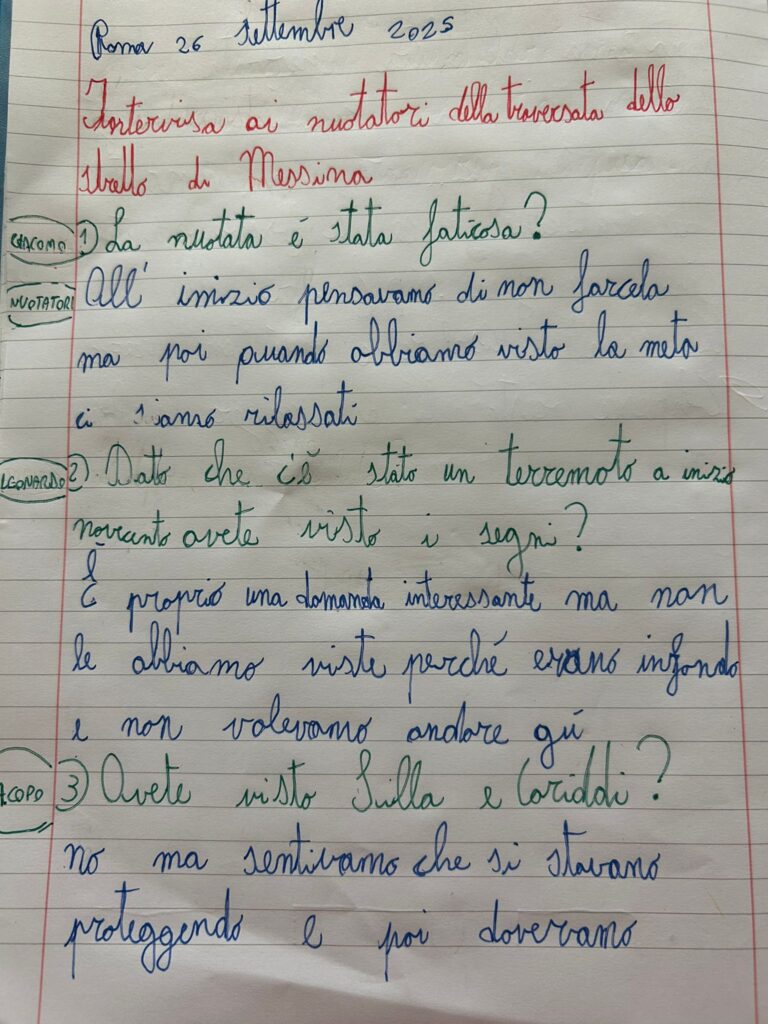 Roma 26 settembre 2025
Intervisa ai nuotatori della traversata dello
stretto di Messina
GIACOMO 1) La nuotata é stata faticosa?
NUOTATORI All' inizio pensavamo di non farcela
ma poi quando abbiamo visto la meta
ci siamo rilassati
LEONARDO 2) Dato che c'è stato un terremoto a inizio
novecento avete visto i segni?
È proprio una domanda interessante ma non
le abbiamo viste perché erano infondo
e non volevamo andare gú
ACOPO 3) Avete visto Scilla e Cariddi?
No ma sentivamo che si stavano
proteggendo e poi dovevamo